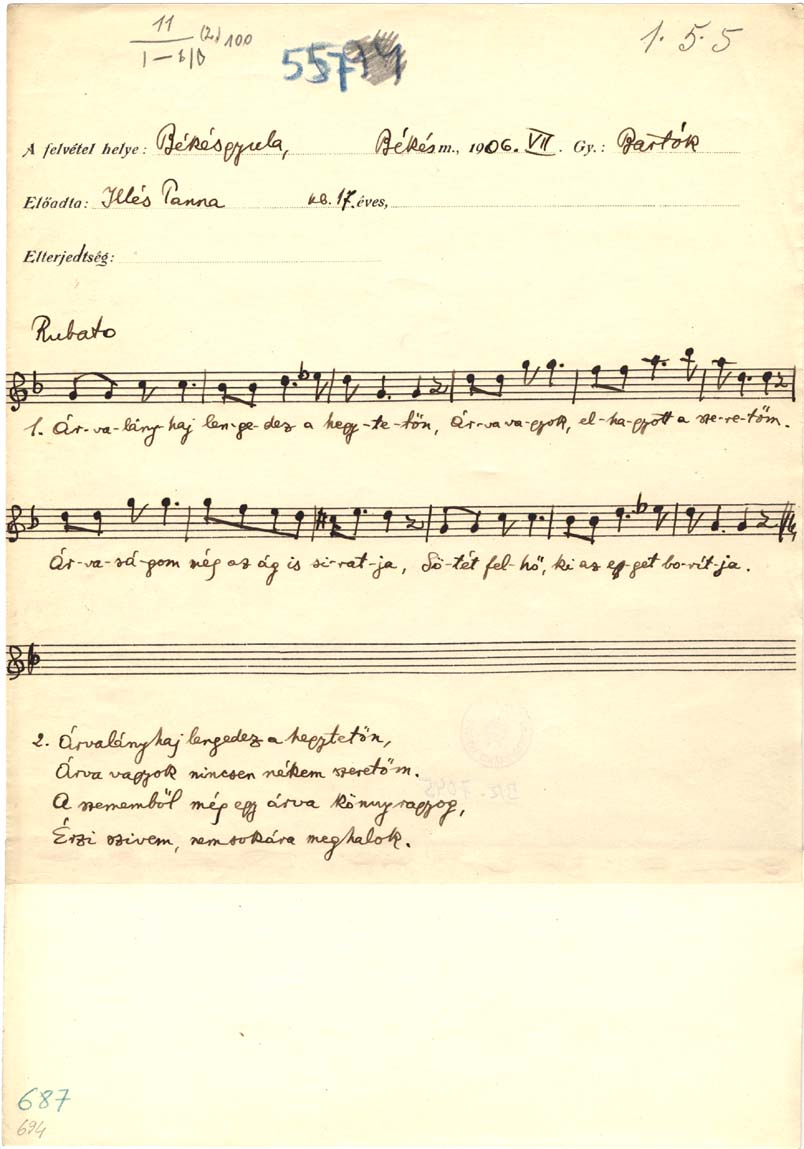 11 (2.) 100
I–
1. 5. 5
A felvétel helye: Békésgyula, Békés m., 1906. VII. Gy.: Bartók
Előadta: Illés Panna kb. 17. éves,
Elterjedtség:
Rubato
1. Ár-va-lány-haj len-ge-dez a hegy-te-tőn, Ár-va va-gyok, el-ha-gyott a sze-re-tőm.
Ár-va-sá-gom még az ág is si-rat-ja, Sö-tét fel-hő, ki az eg-get bo-rít-ja.
2. Árvalányhaj lengedez a hegytetőn,
Árva vagyok nincsen nékem szeretőm.
A szememből még egy árva könny ragyog,
Érzi szivem, nemsokára meghalok.
687
694